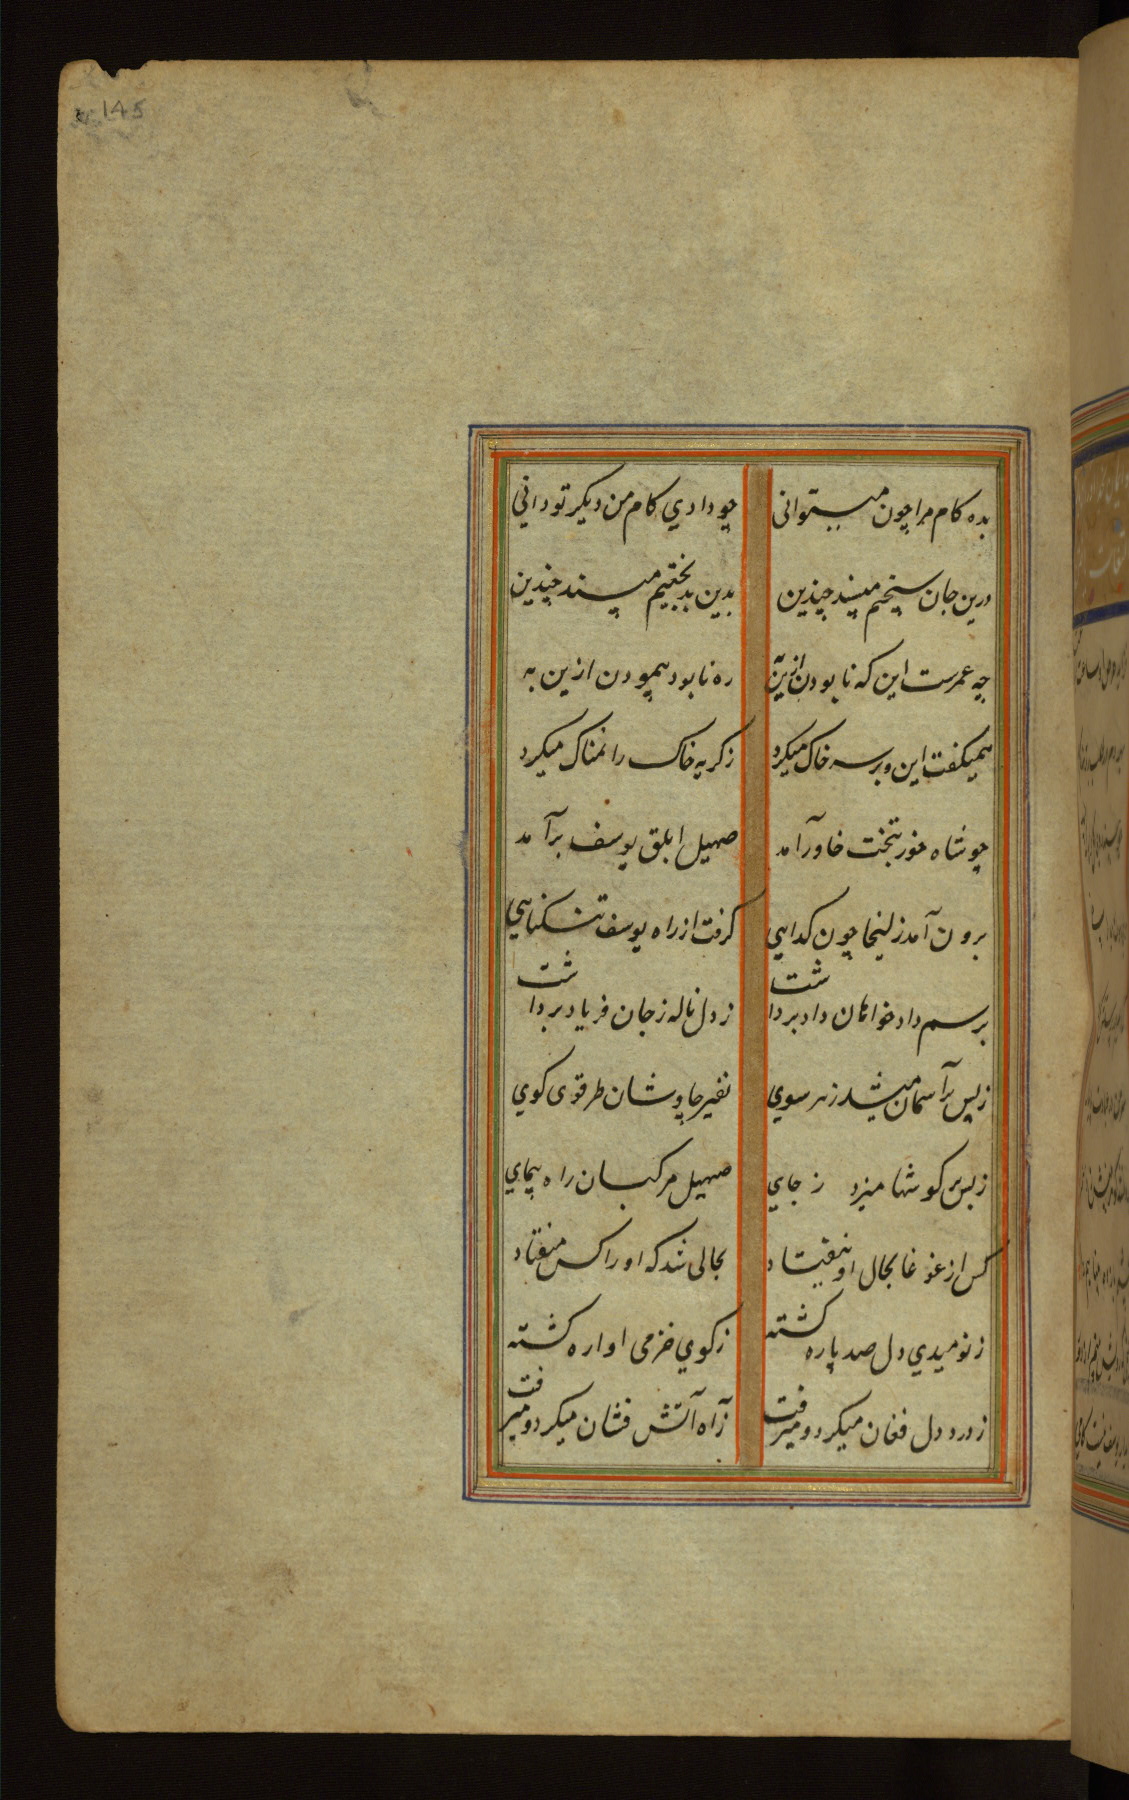 145
بده کام مرا چون میتوانی چو دادي کام من دیکر تو دانی
درین جان سختیم مپسند چندین بدین بدبختیم مپسند چندین
چه عمرست این که نابودن ازین به ره نابود پیمودن ازین به
همیکفت این و بر سر خاک میکرد ز کریه خاک را نمناک میکرد
چو شاه خور بتخت خاور آمد صهیل ابلق یوسف برآمد
برون آمد زلیخا چون کدایي کرفت از راه یوسف تنکنایي
برسم دادخواهان داد برداشت ز دل ناله ز جان فریاد برداشت
ز بس بر آسمان میشد ز هر سوي نفیر چاوشان طرقوی کوي
ز بس بر کوشها میزد ز جاي صهیل مرکبان راه پیماي
کس از غوغا بحال او نیفتاد بحالی شد که او را کس مبیناد
ز نومیدي دل صد پاره کشته ز کوي خرمی اواره کشته
ز درد دل فغان میکرد و میرفت ز آه آتش فشان میکرد و میرفت